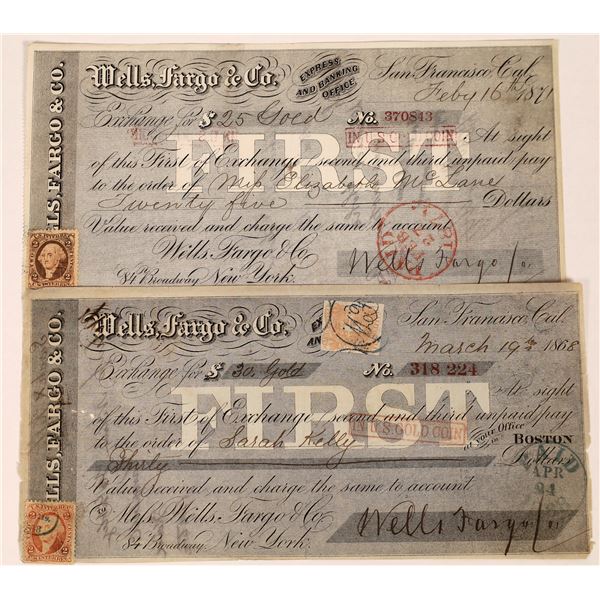 WELLS, FARGO & CO.
Wells, Fargo & Co.
EXPRESS AND BANKING OFFICE.
San Francisco, Cal.
Feby 16th 1871
Exchange for $ 25 Gold No. 370843
IN U.S. GOLD COIN
At sight
FIRST
of this First of Exchange (second and third unpaid) pay
to the order of Miss Elizabeth McLane
Twenty five Dollars
Value received and charge the same to account
Wells, Fargo & Co.
84 Broadway, New York.
Wells Fargo
WELLS, FARGO & CO.
Wells, Fargo & Co.
San Francisco, Cal.
March 19th 1868
Exchange for $ 30. Gold No. 318 224
At sight
FIRST
of this First of Exchange (second and third unpaid) pay
to the order of Sarah Kelly
IN U.S. GOLD COIN
at your Office in BOSTON
Thirty Dollars
PAID
APR
Value received and charge the same to account
To Mess. Wells, Fargo & Co.
84 Broadway, New York.
Wells Fargo